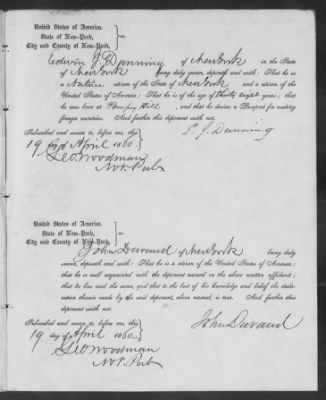 United States of America.
State of New-York,
City and County of New-York.
Edwin J Dunning of New York in the State
of New York being duly sworn, deposeth and saith: That he is
a Native citizen of the State of New York and a citizen of the
United States of America: That he is of the age of thirty eight years; that
he was born at Pompey Hill, and that he desires a Passport for visiting
foreign countries. And further this deponent saith not.
Subscribed and sworn to, before me, this
19 day of April 1860.
E. J. Dunning
S. E. O. Woodman
Not. Pub.
United States of America.
State of New-York,
City and County of New-York.
John Duraud of New York being duly
sworn, deposeth and saith: That he is a citizen of the United States of America;
that he is well acquainted with the deponent named in the above written affidavit;
that he has read the same, and that to the best of his knowledge and belief the declaration
therein made by the said deponent, above named, is true. And further this
deponent saith not.
Subscribed and sworn to, before me, this
19 day of April 1860
John Duraud
S. E. O. Woodman
Not. Pub